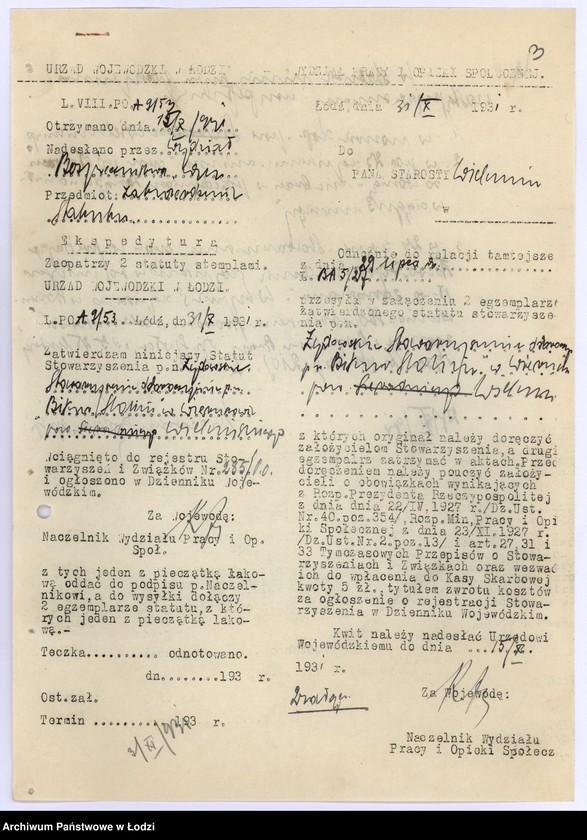 3
URZĄD WOJEWÓDZKI w ŁODZI
WYDZIAŁ PRACY I OPIEKI SPOŁECZNEJ.
L.VIII.PO.A 9/53
Otrzymano dnia. 15/X/931
Nadesłano przez. Wydział
Bezpieczeństwa
Przedmiot: Zatwierdzenie
Statutu
Ekspedytura
Zaopatrzy 2 statuty stemplami.
URZĄD WOJEWÓDZKI W ŁODZI.
L.PO.A 9/53. Łódź, dn. 31/X 1931 r.
Zatwierdzam niniejszy Statut
Stowarzyszenia p.n. Żydowskie
Stowarzyszenie
"Bikur Holim" w
pow. Wieluńskiego
Wciągnięto do rejestru Sto-
warzyszeń i Związków Nr. 285/10.
i ogłoszono w Dzienniku Woje-
wódzkim.
Za Wojewodę:
Naczelnik Wydziału Pracy i Op.
Społ.
z tych jeden z pieczątką łako-
wą oddać do podpisu p.Naczel-
nikowi, a do wysyłki dołączy
2 egzemplarze statutu, z któ-
rych jeden z pieczątką lako-
wą.-
Teczka.......... odnotowano.
dn........193 r.
Ost.zał.
Termin .........193 r.
Łódź, dnia 31/X 1931 r.
Do
PANA STAROSTY Wieluniu
w
Odnośnie do relacji tamtejsze
z dnia 29 lipca r.
L. BA 5/27
przesyła w załączeniu 2 egzemplarz
zatwierdzonego statutu stowarzysze
nia p.n.
Żydowskie Stowarzyszenie
pn. Bikur Holim" w
pow. Wieluń
z których oryginał należy doręczyć
założycielom Stowarzyszenia, a drugi
egzemplarz zatrzymać w aktach. Przed
doręczeniem należy pouczyć założy-
cieli o obowiązkach wynikających
z Rozp.Prezydenta Rzeczypospolitej
z dnia dnia 22/IV.1927 r./Dz.Ust.
Nr.40.poz.354/, Rozp.Min.Pracy i Opi
ki Społecznej z dnia 23/XI.1927 r.
/Dz.Ust.Nr.2.poz.13/ i art.27,31 i
33 Tymczasowych Przepisów o Stowa-
rzyszeniach i Związkach oraz wezwać
ich do wpłacenia do Kasy Skarbowej
kwoty 5 zł., tytułem zwrotu kosztów
za ogłoszenie o rejestracji Stowa-
rzyszenia w Dzienniku Wojewódzkim.
Kwit należy nadesłać Urzędowi
Wojewódzkiemu do dnia ... 15/XI.
1931 r.
Za Wojewodę:
Naczelnik Wydziału
Pracy i Opieki Społecz
Archiwum Państwowe w Łodzi